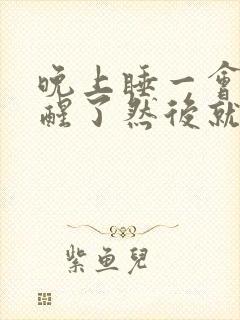 晚上睡一會
醒了然後就
紫魚兒